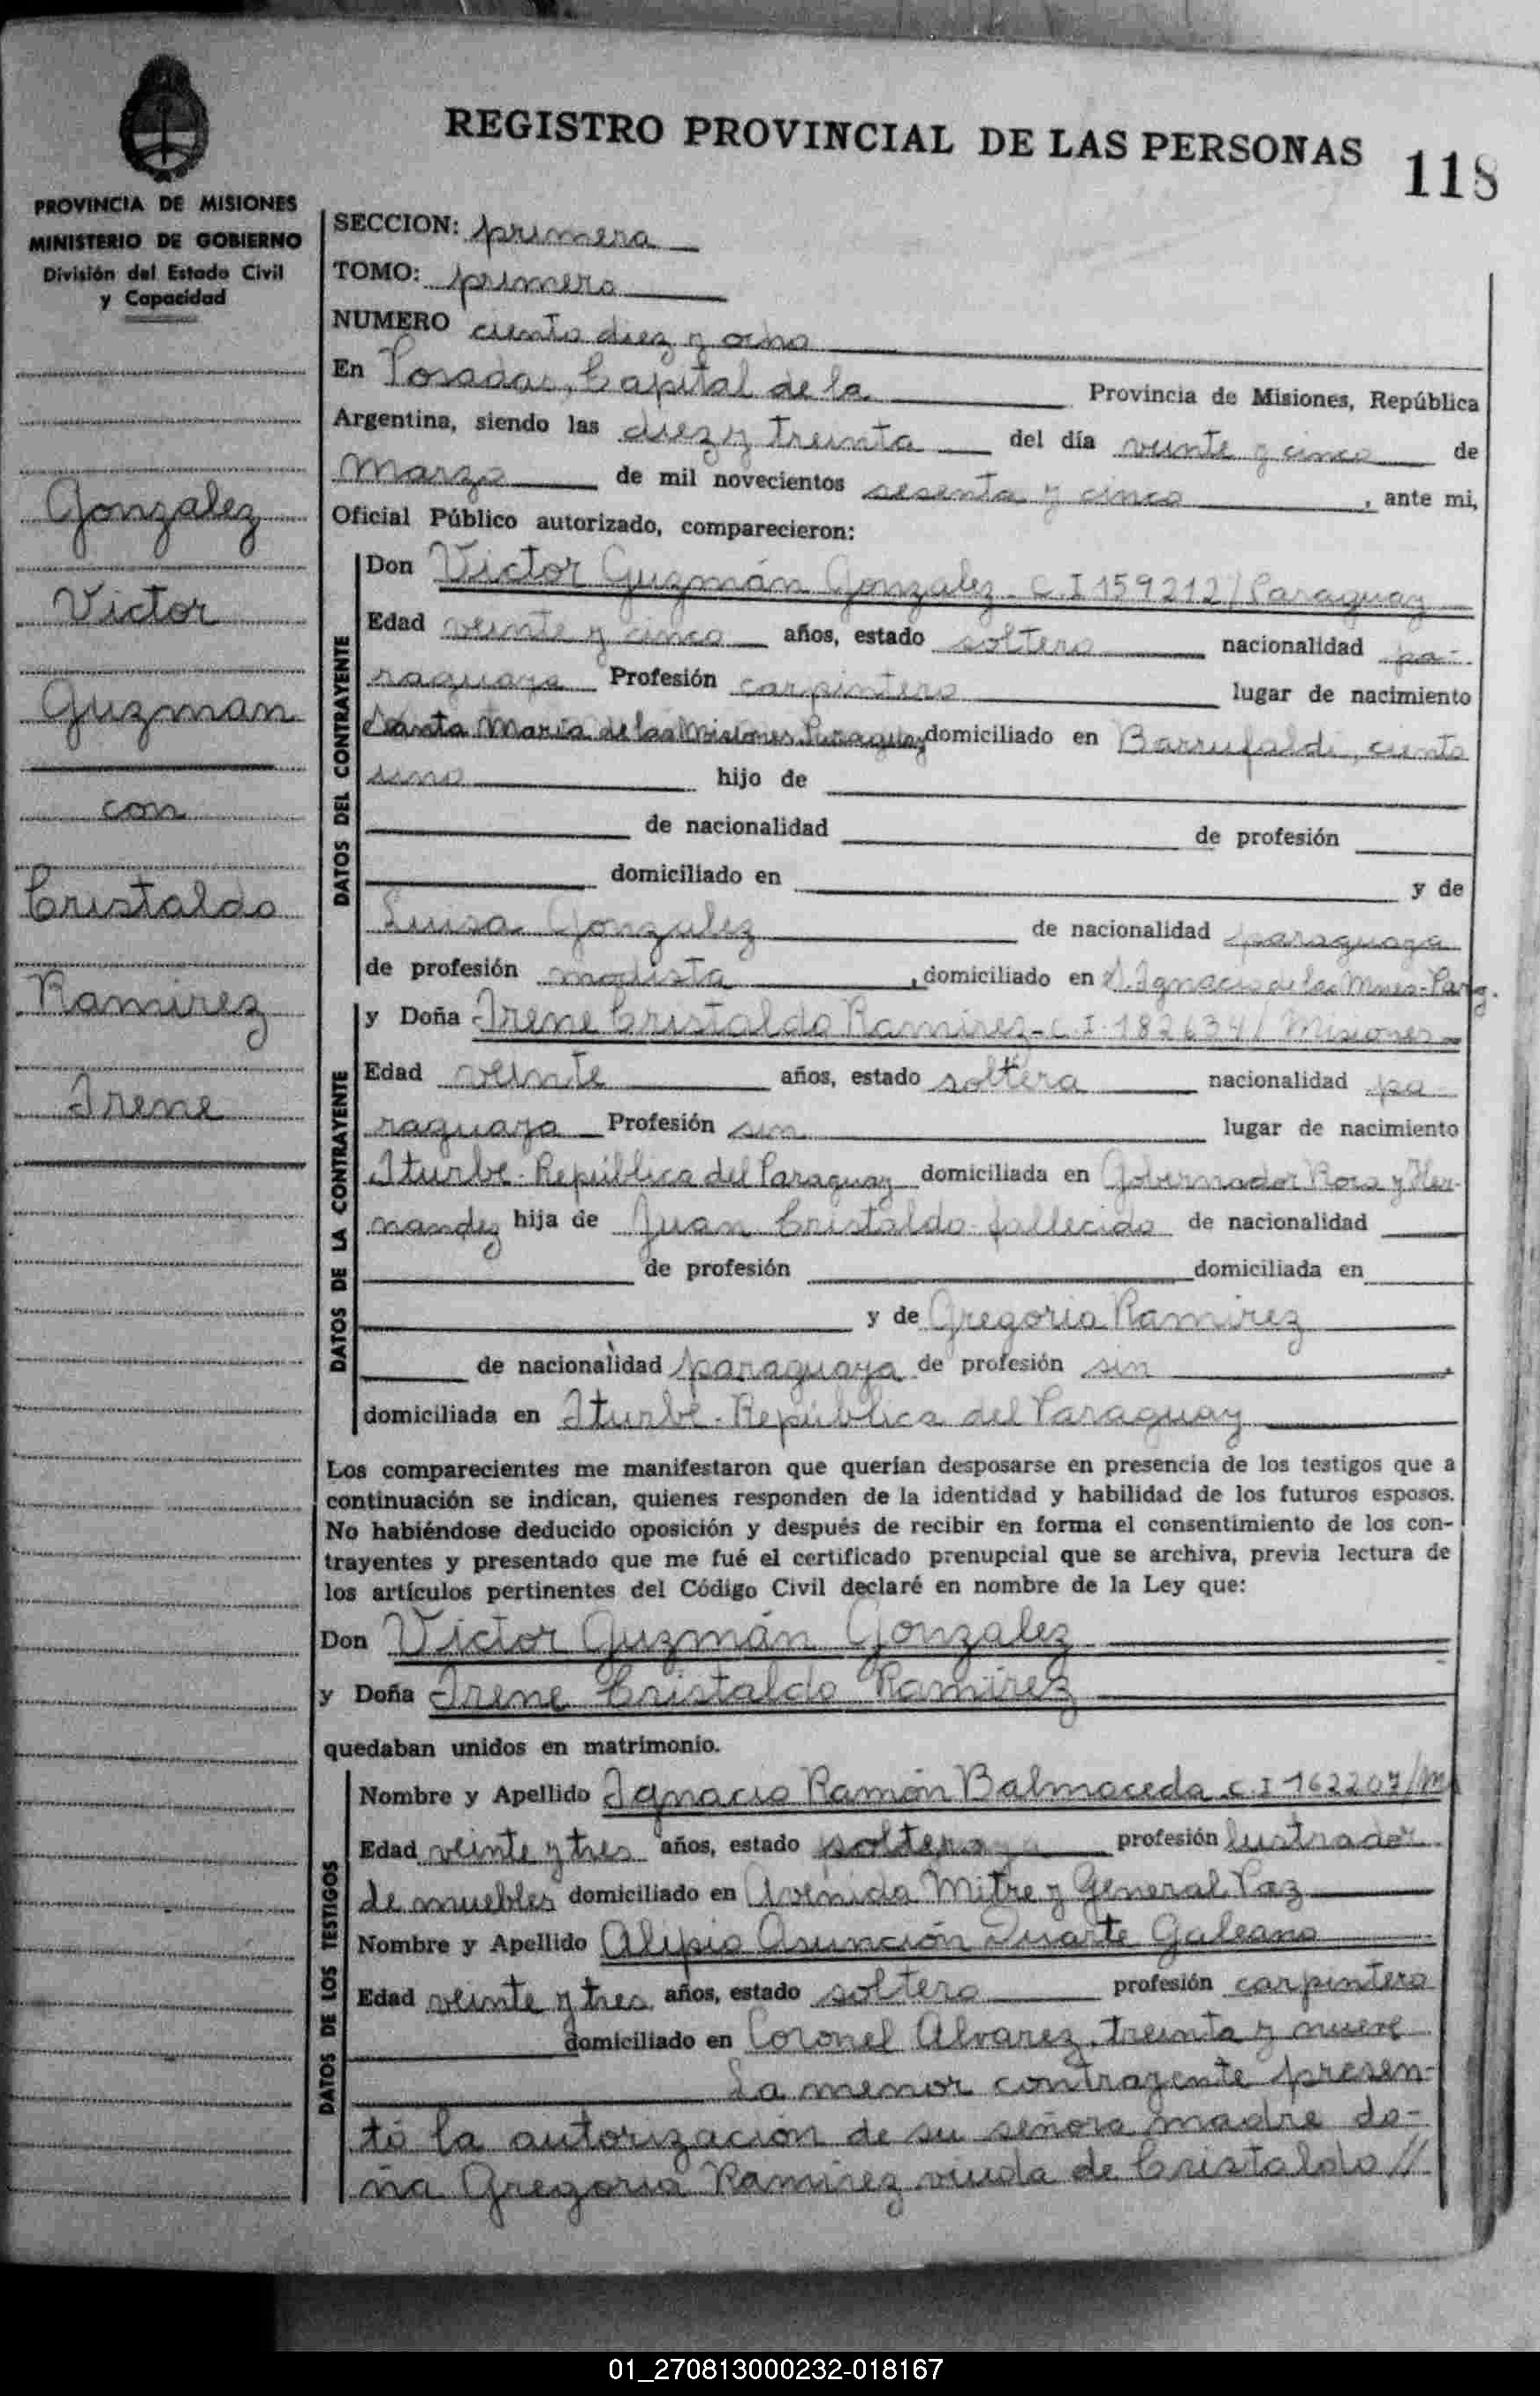 REGISTRO PROVINCIAL DE LAS PERSONAS
118
PROVINCIA DE MISIONES
MINISTERIO DE GOBIERNO
División del Estado Civil
y Capacidad
Gonzalez
Victor
Guzman
con
Cristaldo
Ramirez
Irene
SECCION: primera
TOMO: primero
NUMERO ciento diez y ocho
En Posadas, Capital de la Provincia de Misiones, República
Argentina, siendo las diez y treinta del día veinte y cinco de
marzo de mil novecientos sesenta y cinco, ante mi,
Oficial Público autorizado, comparecieron:
DATOS DEL CONTRAYENTE
Don Victor Guzmán Gonzalez - C.I 159212/Paraguay
Edad veinte y cinco años, estado soltero nacionalidad pa-
raguaya Profesión carpintero lugar de nacimiento
Santa María de las Misiones Paraguay domiciliado en Barrufaldi, ciento
uno hijo de
de nacionalidad de profesión
domiciliado en y de
Luisa Gonzalez de nacionalidad paraguaya
de profesión modista, domiciliado en S. Ignacio de las Parag.
DATOS DE LA CONTRAYENTE
y Doña Irene Cristaldo Ramirez - C.I. 182634/Misiones
Edad veinte años, estado soltera nacionalidad pa-
raguaya Profesión sin lugar de nacimiento
Iturbe - República del Paraguay domiciliada en Gobernador Roca y Her-
nandez hija de Juan Cristaldo fallecido de nacionalidad
de profesión domiciliada en
y de Gregoria Ramirez
de nacionalidad paraguaya de profesión sin
domiciliada en Iturbe - República del Paraguay
Los comparecientes me manifestaron que querían desposarse en presencia de los testigos que a
continuación se indican, quienes responden de la identidad y habilidad de los futuros esposos.
No habiéndose deducido oposición y después de recibir en forma el consentimiento de los con-
trayentes y presentado que me fué el certificado prenupcial que se archiva, previa lectura de
los artículos pertinentes del Código Civil declaré en nombre de la Ley que:
Don Victor Guzmán Gonzalez
y Doña Irene Cristaldo Ramirez
quedaban unidos en matrimonio.
DATOS DE LOS TESTIGOS
Nombre y Apellido Ignacio Ramón Balmaceda C.I 162207/M
Edad veinte y tres años, estado soltero profesión lustrador
de muebles domiciliado en Avenida Mitre y General Paz
Nombre y Apellido Alipio Asunción Duarte Galeano
Edad veinte y tres años, estado soltero profesión carpintero
domiciliado en Coronel Alvarez, treinta y nueve
La menor contrayente presen-
tó la autorización de su señora madre do-
ña Gregoria Ramirez viuda de Cristaldo //
01_270813000232-018167